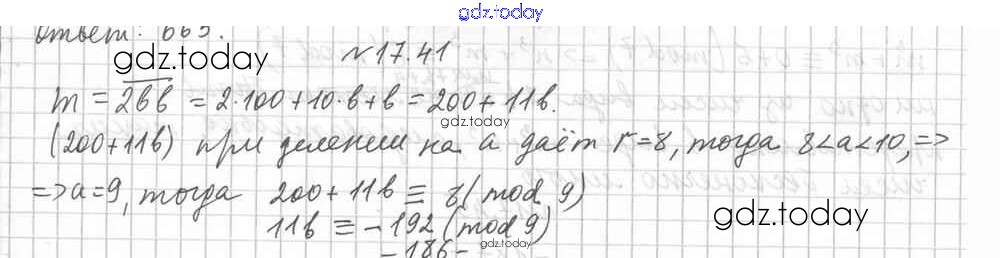 gdz.today
Ответ: 665.
gdz.today
N 17.41
m = 2вв = 2·100+10·в+в = 200+11в.
gdz.today
(200+11в) при делении на а даёт r=8, тогда 8<a<10, =>
=> a=9, тогда 200+11в ≡ 8 (mod 9)
gdz.today
11в ≡ -192 (mod 9)
gdz.today
-186-